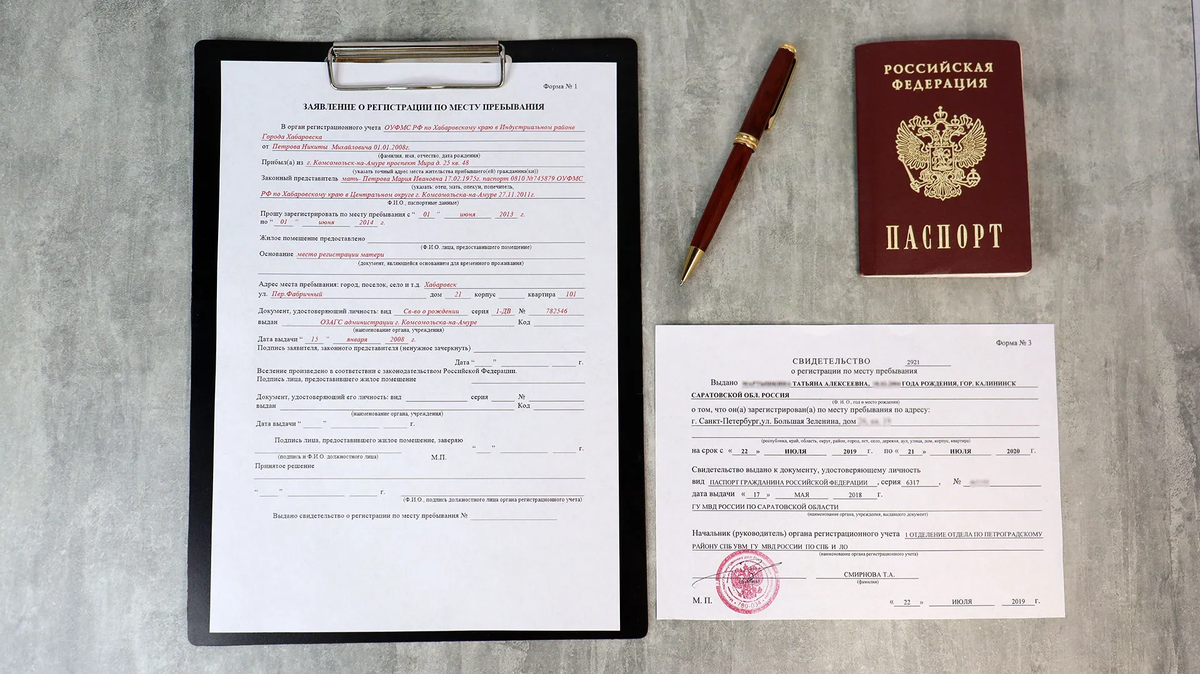 Форма № 1
ЗАЯВЛЕНИЕ О РЕГИСТРАЦИИ ПО МЕСТУ ПРЕБЫВАНИЯ
В орган регистрационного учета ОУФМС РФ по Хабаровскому краю в Индустриальном районе
Города Хабаровска
от Петрова Никиты Михайловича 01.01.2008г.
(фамилия, имя, отчество, дата рождения)
Прибыл(а) из г. Комсомольск-на-Амуре проспект Мира д. 25 кв. 48
(указать точный адрес места жительства прибывшего(ей) гражданина(ки))
Законный представитель мать- Петрова Мария Ивановна 17.02.1975г. паспорт 0810 №745879 ОУФМС
(указать: отец, мать, опекун, попечитель,
РФ по Хабаровскому краю в Центральном округе г. Комсомольска-на-Амуре 27.11.2011г.
Ф.И.О., паспортные данные)
Прошу зарегистрировать по месту пребывания с “ 01 ” июня 2013 г.
по “ 01 ” июня 2014 г.
Жилое помещение предоставлено
(Ф.И.О. лица, предоставившего помещение)
Основание место регистрации матери
(документ, являющейся основанием для временного проживания)
Адрес места пребывания: город, поселок, село и т.д. Хабаровск
ул. Пер.Фабричный дом 21 корпус квартира 101
Документ, удостоверяющий личность: вид Св-во о рождении серия 1-ДВ № 782546
выдан ОЗАГС администрации г. Комсомольска-на-Амуре Код
(наименование органа, учреждения)
Дата выдачи “ 15 ” января 2008 г.
Подпись заявителя, законного представителя (ненужное зачеркнуть)
Дата “ ” г.
Вселение произведено в соответствии с законодательством Российской Федерации.
Подпись лица, предоставившего жилое помещение
Документ, удостоверяющий его личность: вид серия №
выдан Код
(наименование органа, учреждения)
Дата выдачи “ ” г.
Подпись лица, предоставившего жилое помещение, заверяю
“ ” г.
(подпись и Ф.И.О. должностного лица) М.П.
Принятое решение
“ ” г.
(Ф.И.О., подпись должностного лица органа регистрационного учета)
Выдано свидетельство о регистрации по месту пребывания №
РОССИЙСКАЯ
ФЕДЕРАЦИЯ
ПАСПОРТ
Форма № 3
СВИДЕТЕЛЬСТВО 2921
о регистрации по месту пребывания
Выдано ТАТЬЯНА АЛЕКСЕЕВНА, ГОДА РОЖДЕНИЯ, ГОР. КАЛИНИНСК
САРАТОВСКОЙ ОБЛ. РОССИЯ
(Ф. И. О., год и место рождения)
о том, что он(а) зарегистрирован(а) по месту пребывания по адресу:
г. Санкт-Петербург,ул. Большая Зеленина, дом
(республика, край, область, округ, район, город, пгт, село, деревня, аул, улица, дом, корпус, квартира)
на срок с « 22 » ИЮЛЯ 2019 г. по « 21 » ИЮЛЯ 2020 г.
Свидетельство выдано к документу, удостоверяющему личность
вид ПАСПОРТ ГРАЖДАНИНА РОССИЙСКОЙ ФЕДЕРАЦИИ , серия 6317 , №
дата выдачи « 17 » МАЯ 2018 г.
ГУ МВД РОССИИ ПО САРАТОВСКОЙ ОБЛАСТИ
(наименование органа, учреждения, выдавшего документ)
Начальник (руководитель) органа регистрационного учета 1 ОТДЕЛЕНИЕ ОТДЕЛА ПО ПЕТРОГРАДСКОМУ
РАЙОНУ СПБ УВМ ГУ МВД РОССИИ ПО СПБ И ЛО
(наименование органа регистрационного учета)
СМИРНОВА Т.А.
(фамилия)
780-034
М. П. « 22 » ИЮЛЯ 2019 г.